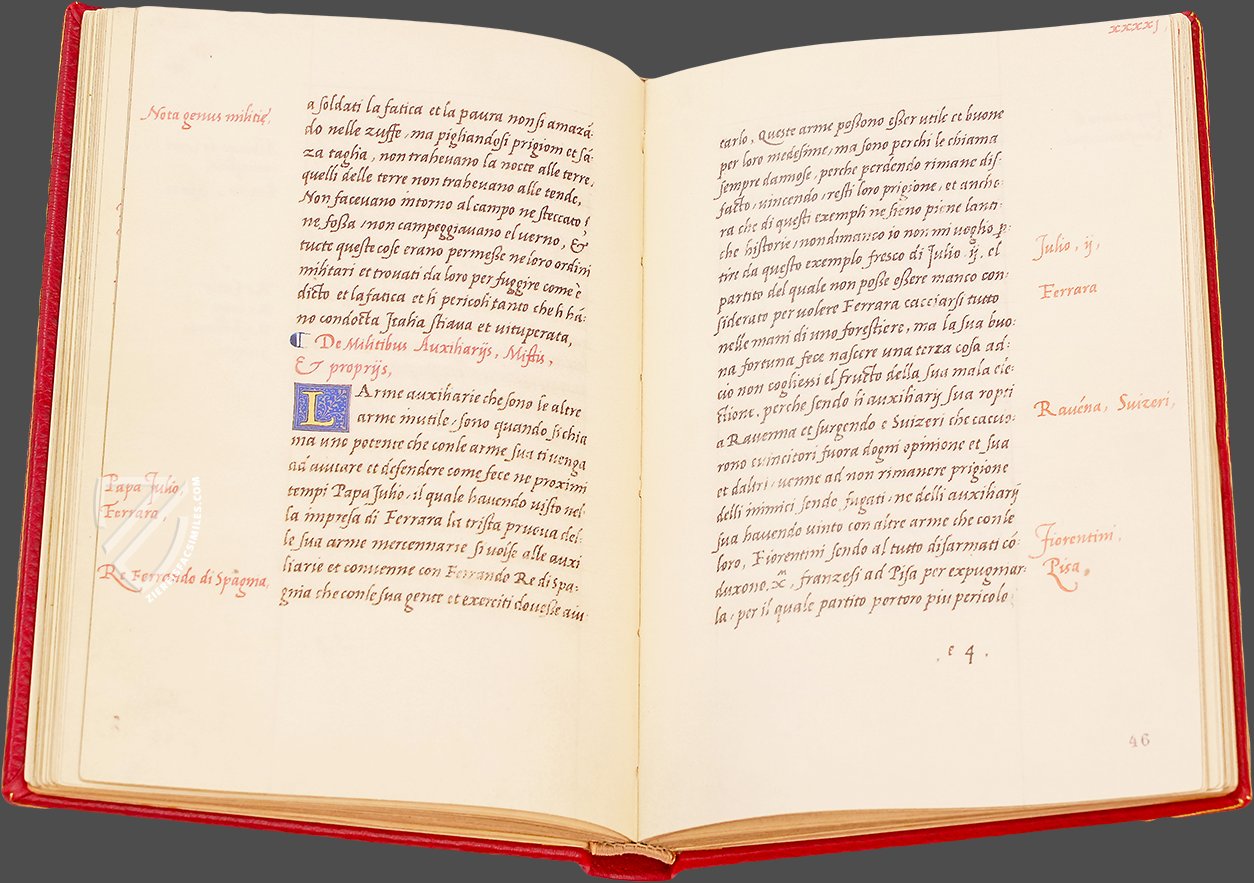 Nota genus militię,
a soldati la fatica et la paura non si amazá-
do nelle zuffe, ma pigliandosi prigioni et sá-
za taglia, non trahevano la nocte alle terre,
quelli delle terre non trahevano alle tende,
Non facevano intorno al campo ne steccato,
ne fossa, non campeggiavano el verno, &
tucte queste cose erano permesse ne loro ordini
militari et trovati da loro per fuggire come è
dicto et la fatica et li pericoli tanto che li há-
no condocta Italia stiava et vituperata,
De Militibus Auxiliarijs, Mistis,
& proprijs,
L Arme auxiliarie che sono le altre
arme inutile, sono quando si chia
ma uno potente che con le arme sua ti venga
ad aiutare et defendere come fece ne proximi
tempi Papa Julio, il quale havendo visto nel-
la impresa di Ferrara la trista pruova del-
le sua arme mercennarie si volse alle auxi
liarie et convenne con Ferrando Re di Spa-
gnia che con le sua gente et exerciti dovesse aiu-
Papa Julio
Ferrara,
Re Ferrando di Spagnia,
ZIEREIS FACSIMILES.COM
xxxxj,
tarlo, Queste arme possono esser utile et buone
per loro medesime, ma sono per chi le chiama
sempre dannose, perche perdendo rimane dis-
facto, vincendo, resti loro prigione, et ancho-
ra che di questi exempli ne sieno piene l anti-
che historie, nondimanco io non mi voglio p-
tire da questo exemplo fresco di Julio .ij. el
partito del quale non posse essere manco con-
siderato per volere Ferrara cacciarsi tutto
nelle mani di uno forestiere, ma la sua buo-
na fortuna fece nascere una terza cosa ad-
cio non cogliessi el fructo della sua mala ele-
ctione, perche sendo li auxiliarij sua ropti
a Ravenna et surgendo e Suizeri che caccio-
rono e vincitori fuora dogni opinione et sua
et daltri, venne ad non rimanere prigione
delli inimici sendo fugati, ne delli auxiliarij
sua havendo vinto con altre arme che con le
loro, Fiorentini sendo al tutto disarmati có-
duxono .x. franzesi ad Pisa per expugnar-
la, per il quale partito portoro piu pericolo
Julio, ij,
Ferrara
Ravéna, Suizeri,
Fiorentini,
Pisa,
. e 4 .
46